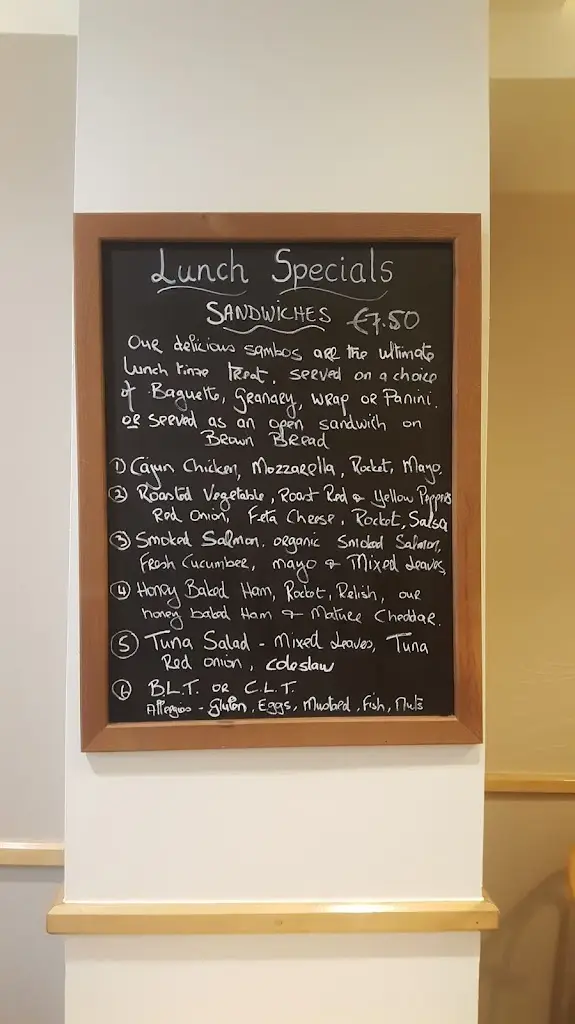 Lunch Specials
SANDWICHES €7.50
Our delicious sambos are the ultimate
lunch time treat, served on a choice
of Baguette, Granary, wrap or Panini.
or served as an open sandwich on
Brown Bread
1) Cajun Chicken, Mozzarella, Rocket, Mayo.
2 Roasted Vegetable, Roast Red & Yellow Peppers
Red Onion, Feta Cheese, Rocket, Salsa
3 Smoked Salmon. organic Smoked Salmon,
Fresh Cucumber, mayo & Mixed Leaves,
4 Honey Baked Ham, Rocket, Relish, our
honey baked Ham & Mature Cheddar.
5 Tuna Salad - Mixed Leaves, Tuna
Red onion, coleslaw
6 B.L.T. or C.L.T.
- Gluten, Eggs, Mustard, Fish, Nuts